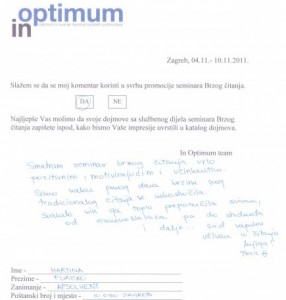 in optimum
Zagreb, 04.11.- 10.11.2011.
Slažem se da se moj komentar koristi u svrhu promocije seminara Brzog čitanja.
DA NE
Najljepše Vas molimo da svoje dojmove sa službenog dijela seminara Brzog
čitanja zapišete ispod, kako bismo Vaše impresije uvrstili u katalog dojmova.
In Optimum team
Smatram seminar brzog čitanja vrlo
pozitivnim, motivirajućim i učinkovitim.
Samo nakon prvog dana brzina mog
tradicionalnog čitanja se
Svakako bih ga toplo preporučila svima,
od osnovnoškolaca pa do studenta
i dalje.. sad napokon
uživam u čitanju
knjiga!
Ime - MARTINA
Prezime -
Zanimanje - APSOLVENT
Poštanski broj i mjesto - 10 000 ZAGREB